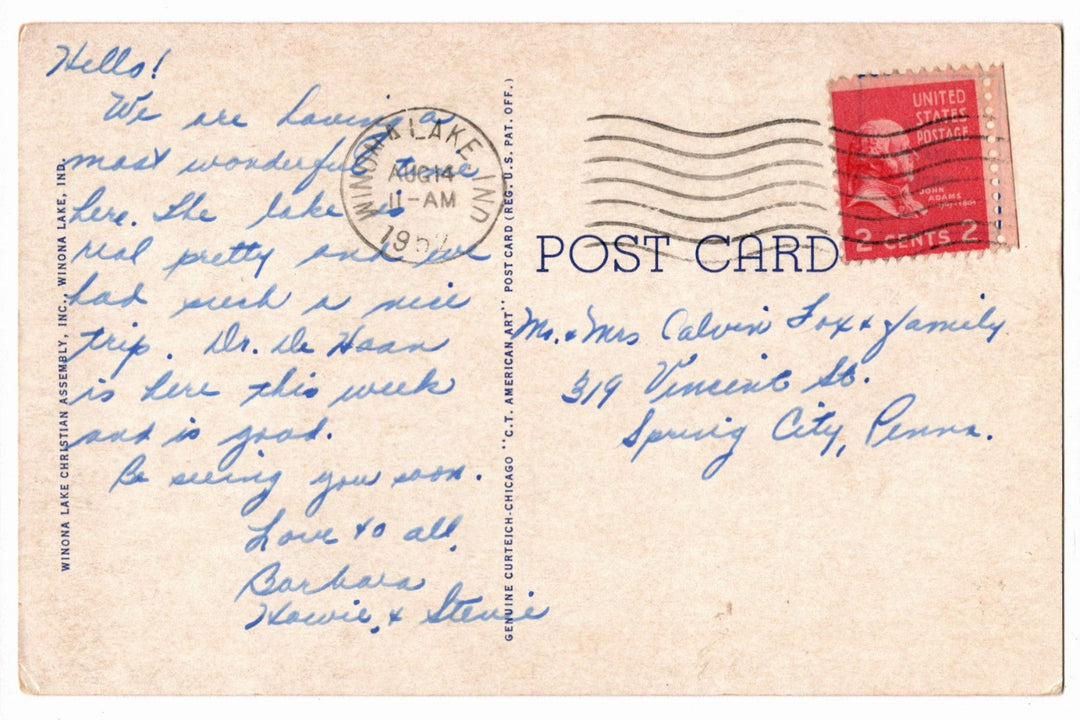 Hello!
We are having a
most wonderful time
here. The lake is
real pretty and we
had such a nice
trip. Dr. De Haan
is here this week
and is good.
Be seeing you soon.
Love to all,
Barbara
Howie, & Stevie
WINONA LAKE CHRISTIAN ASSEMBLY, INC., WINONA LAKE, IND.
GENUINE CURTEICH-CHICAGO "C.T. AMERICAN ART" POST CARD (REG. U.S. PAT. OFF.)
WINONA LAKE, IND
AUG 14
11-AM
1952
POST CARD
UNITED
STATES
POSTAGE
JOHN
ADAMS
2 CENTS 2
Mr. & Mrs Calvin Fox & family
319 Vincent St.
Spring City, Penna.